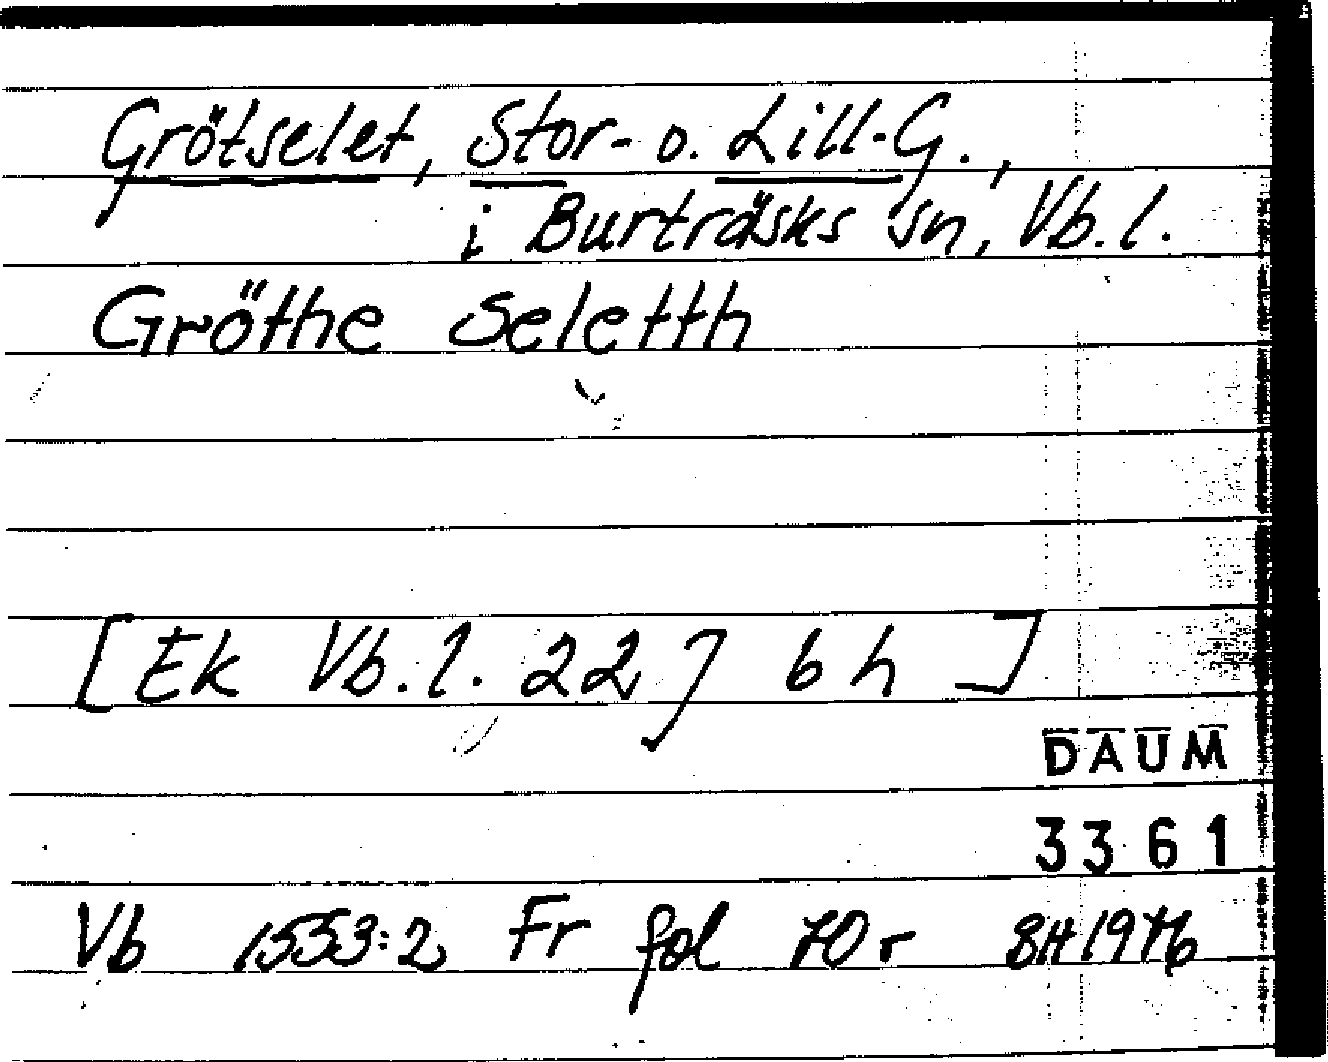 Grötselet, Stor- o. Lill-G.,
i Burträsks sn, Vb.l.
Gröthe Seletth
[Ek Vb.l. 22 J 6 h ]
DAUM
3361
Vb 1553:2 Fr fol 70 r SH 1976